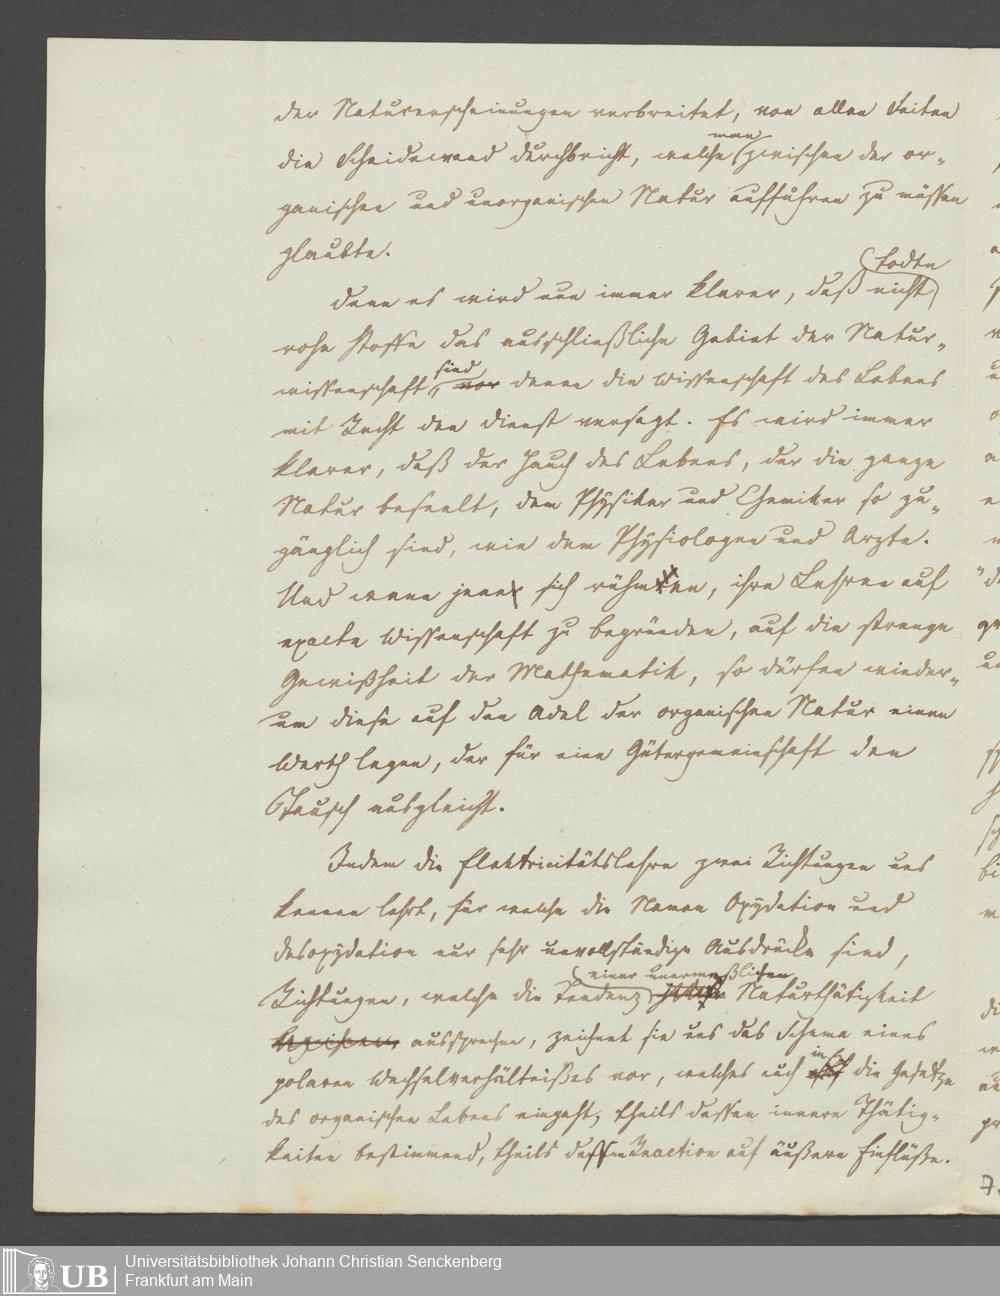 der Naturerscheinungen verbreitet, von allen Seiten
die Scheidewand durchbricht, welche man zwischen der or-
ganischen und unorganischen Natur aufführen zu müssen
glaubte.
Denn es wird nun immer klarer, daß nicht todte
rohe Stoffe das ausschließliche Gebiet der Natur-
wissenschaft sind, denen die Wissenschaft des Lebens
mit Recht den Dienst versagt. Es wird immer
klarer, daß der Hauch des Lebens, der die ganze
Natur beseelt, dem Physiker und Chemiker so zu-
gänglich sind, wie dem Physiologen und Arzte.
Und wenn jene sich rühmen, ihre Lehren auf
exacte Wissenschaft zu begründen, auf die strenge
Gewißheit der Mathematik, so dürfen wieder-
um diese auf den Adel der organischen Natur einen
Werth legen, der für eine Gütergemeinschaft den
Tausch ausgleicht.
Indem die Elektricitätslehre zwei Richtungen uns
kennen lehrt, für welche die Namen Oxydation und
Desoxydation nur sehr unvollständige Ausdrücke sind,
Richtungen, welche die Tendenz einer unermeßlichen Naturthätigkeit
aussprechen, zeichnet sie uns das Schema eines
polaren Wechselverhältnißes vor, welches auch in die Gesetze
des organischen Lebens eingeht, theils dessen innere Thätig-
keiten bestimmend, theils dessen Reaction auf äußere Einflüße.
Universitätsbibliothek Johann Christian Senckenberg
Frankfurt am Main
UB